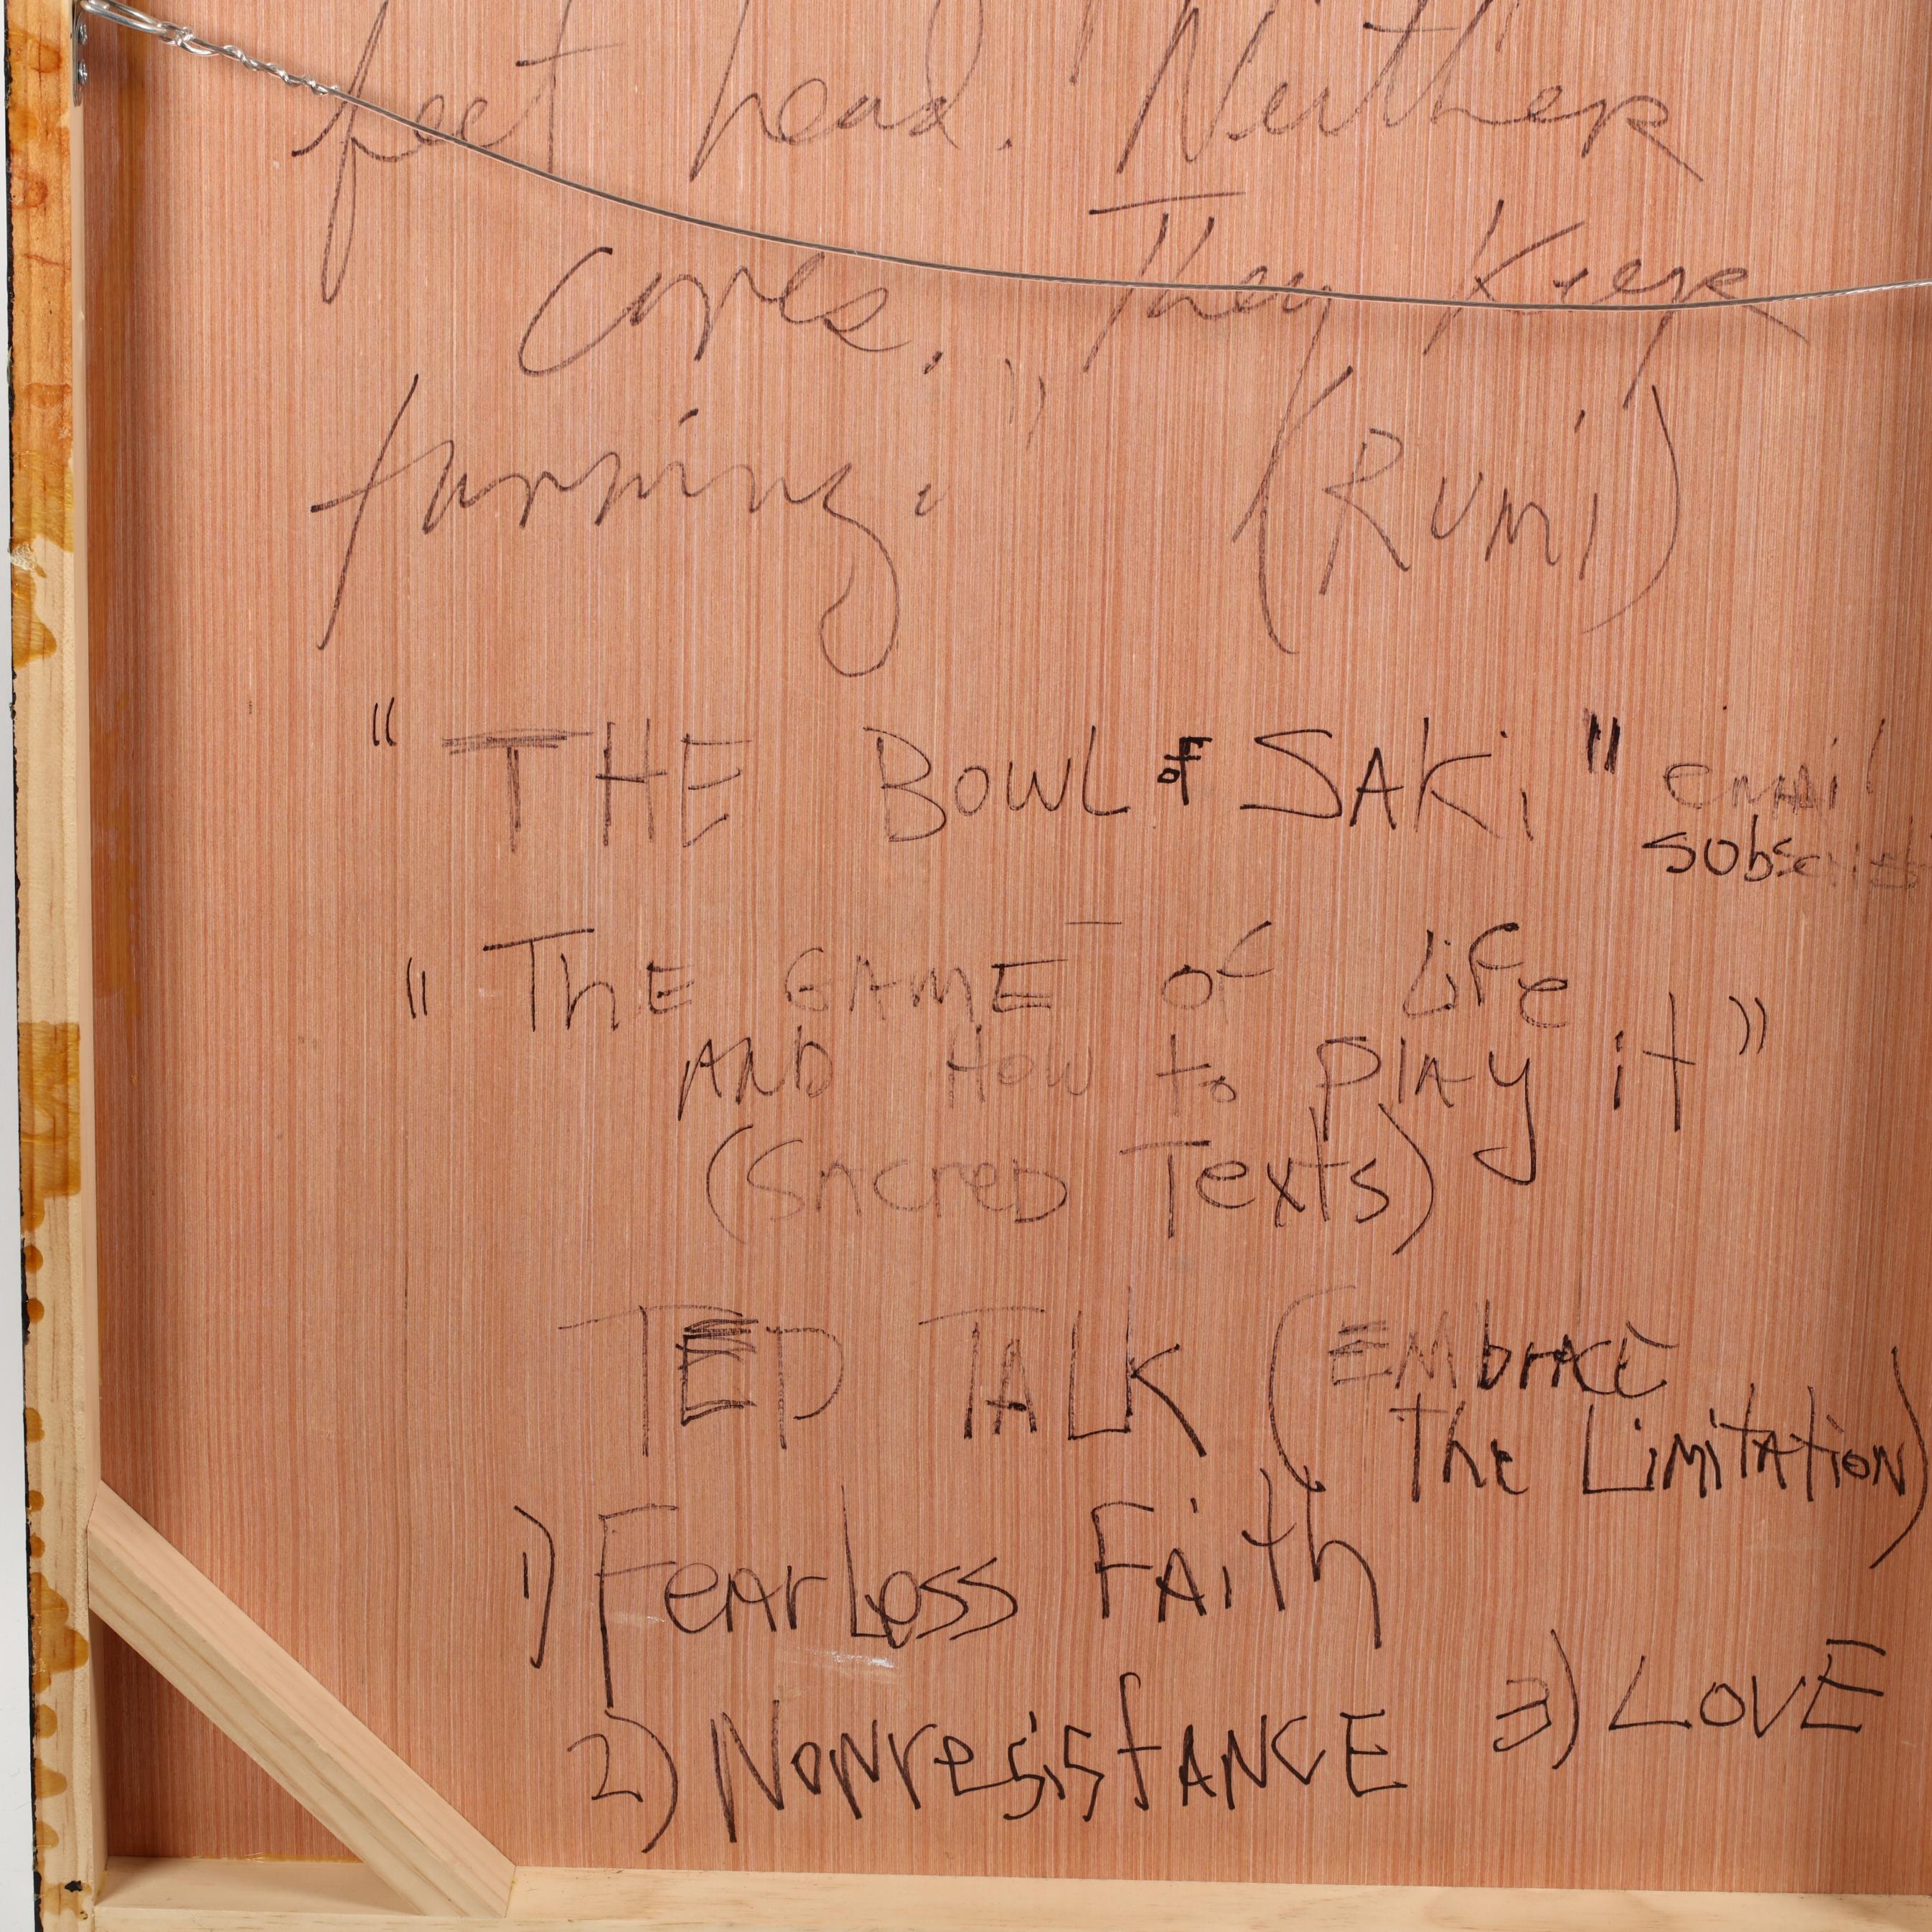 feet head. Neither
cares. They keep
turning." (Rumi)
"THE BOWL of SAKi" email
subscrib
"ThE GAME of Life
AND How to plAy it"
(SacreD Texts)
TED TALK (EMbrACE
The LimitAtioN)
1) FearLess FAith
2) NonresistANCE 3) LOVE